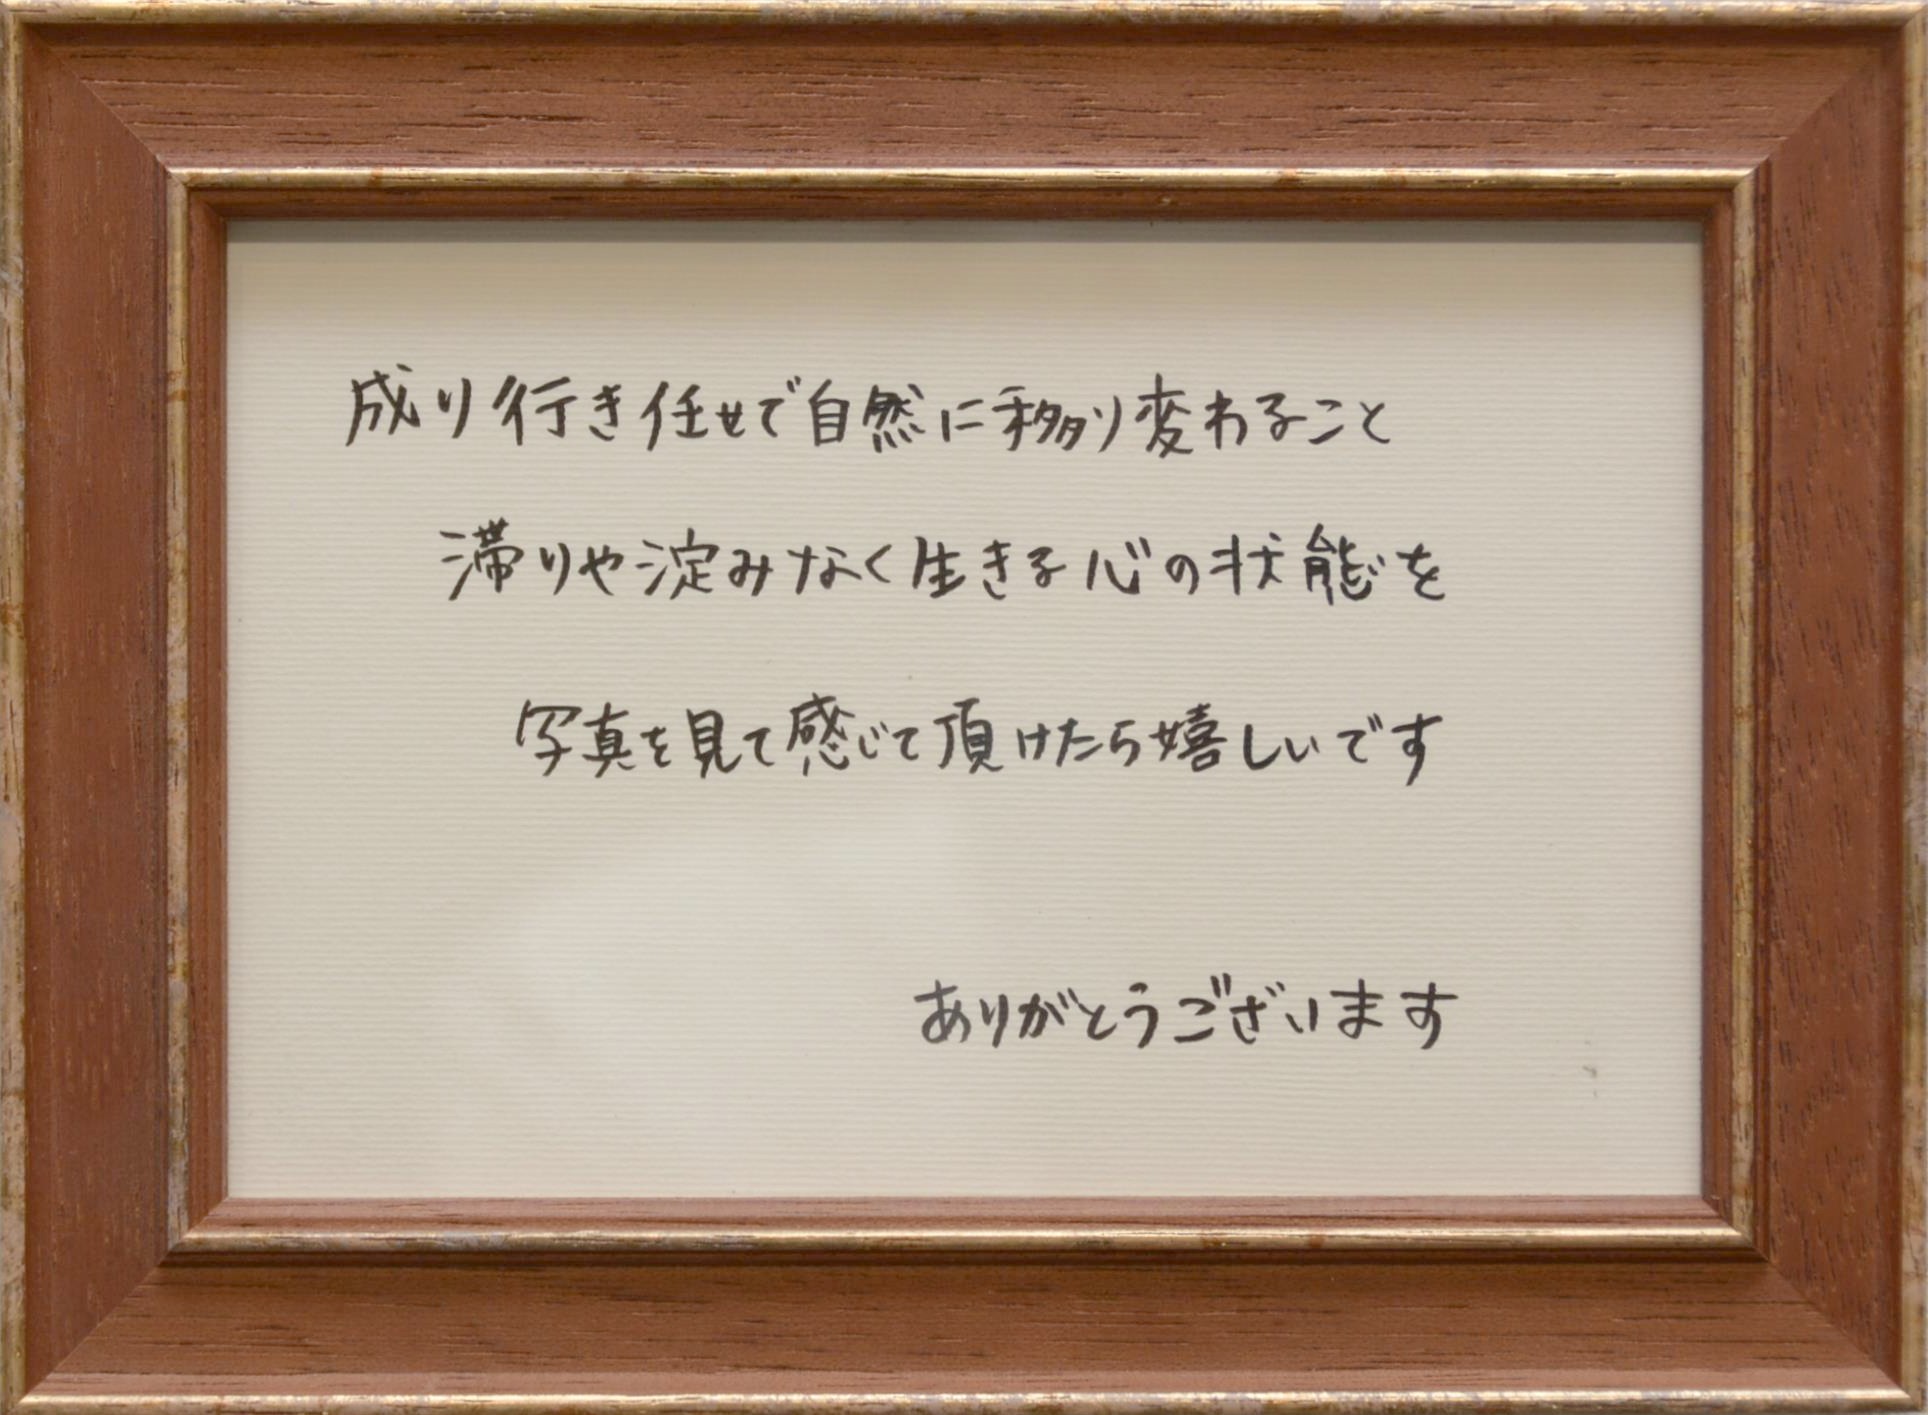 成り行き任せで自然に移り変わること
滞りや淀みなく生きる心の状態を
写真を見て感じて頂けたら嬉しいです
ありがとうございます